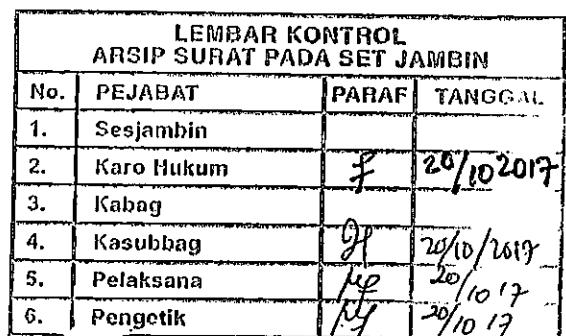 LEMBAR KONTROL
ARSIP SURAT PADA SET JAMBIN
No. PEJABAT PARAF TANGGAL
1. Sesjambin
2. Karo Hukum 20/10 2017
3. Kabag
4. Kasubbag 20/10/2017
5. Pelaksana 20/10 17
6. Pengetik 20/10 17